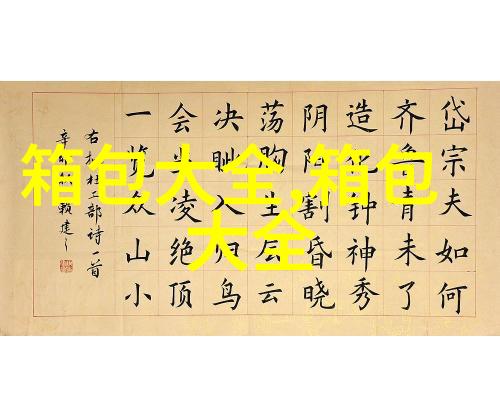 箱包大全,箱包
大全
岱宗夫如何
齐鲁青未了
造化钟神秀
阴阳割昏晓
荡胸生层云
决眦入归鸟
会当凌绝顶
一览众山小
右杜工部诗一首
辛赖建